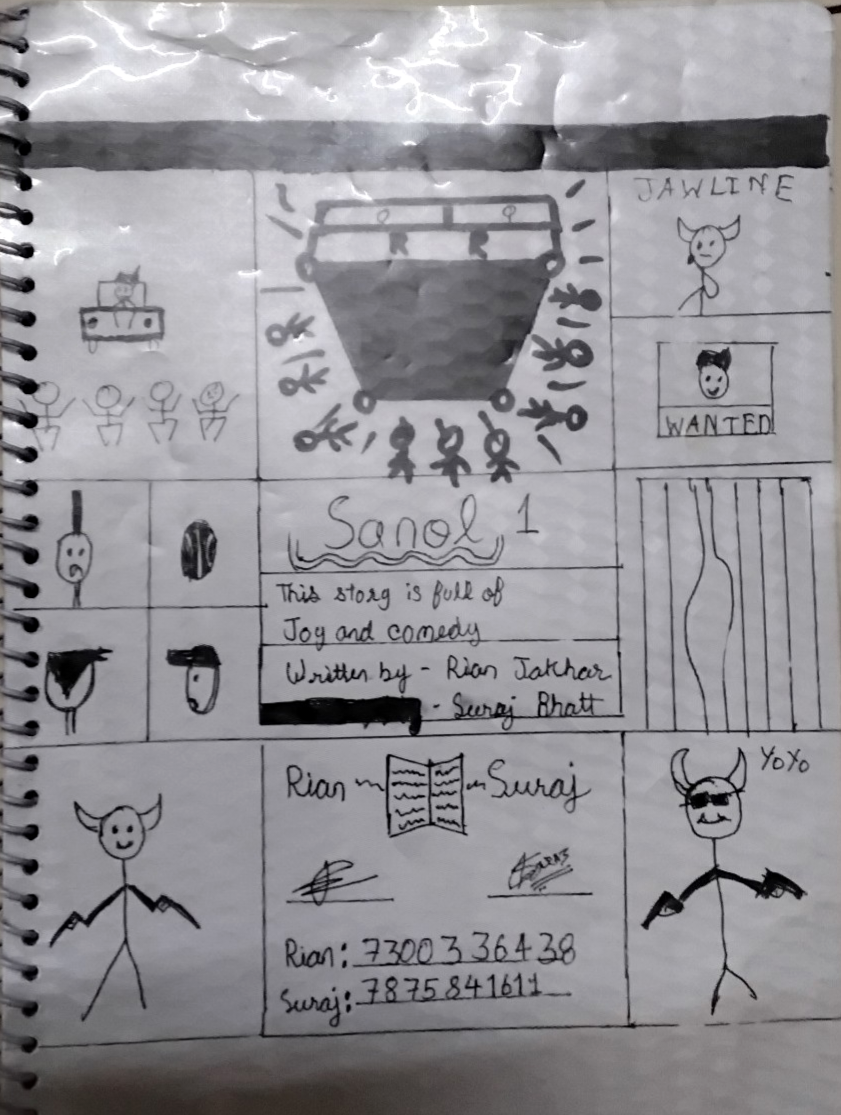 JAWLINE
R R
WANTED
Sanol 1
This storg is full of
Jog and comedy
Written by - Rian Jakhar
- Suraj Bhatt
YoYo
Rian Suraj
Rian: 7300336438
Suraj: 7875841611